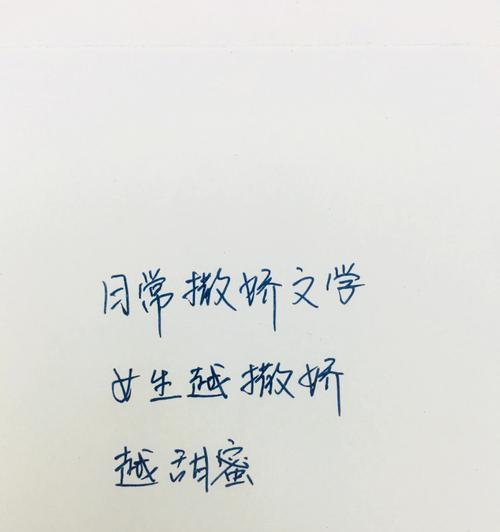 日常撒娇文学
女生越撒娇
越甜蜜